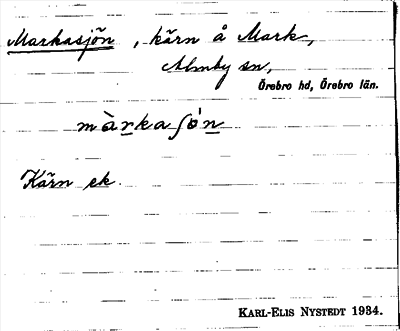 Markasjön, kärn å Mark,
Almby sn,
Örebro hd, Örebro län.
màrkaʃö́n
Kärn ek.
KARL-ELIS NYSTEDT 1934.